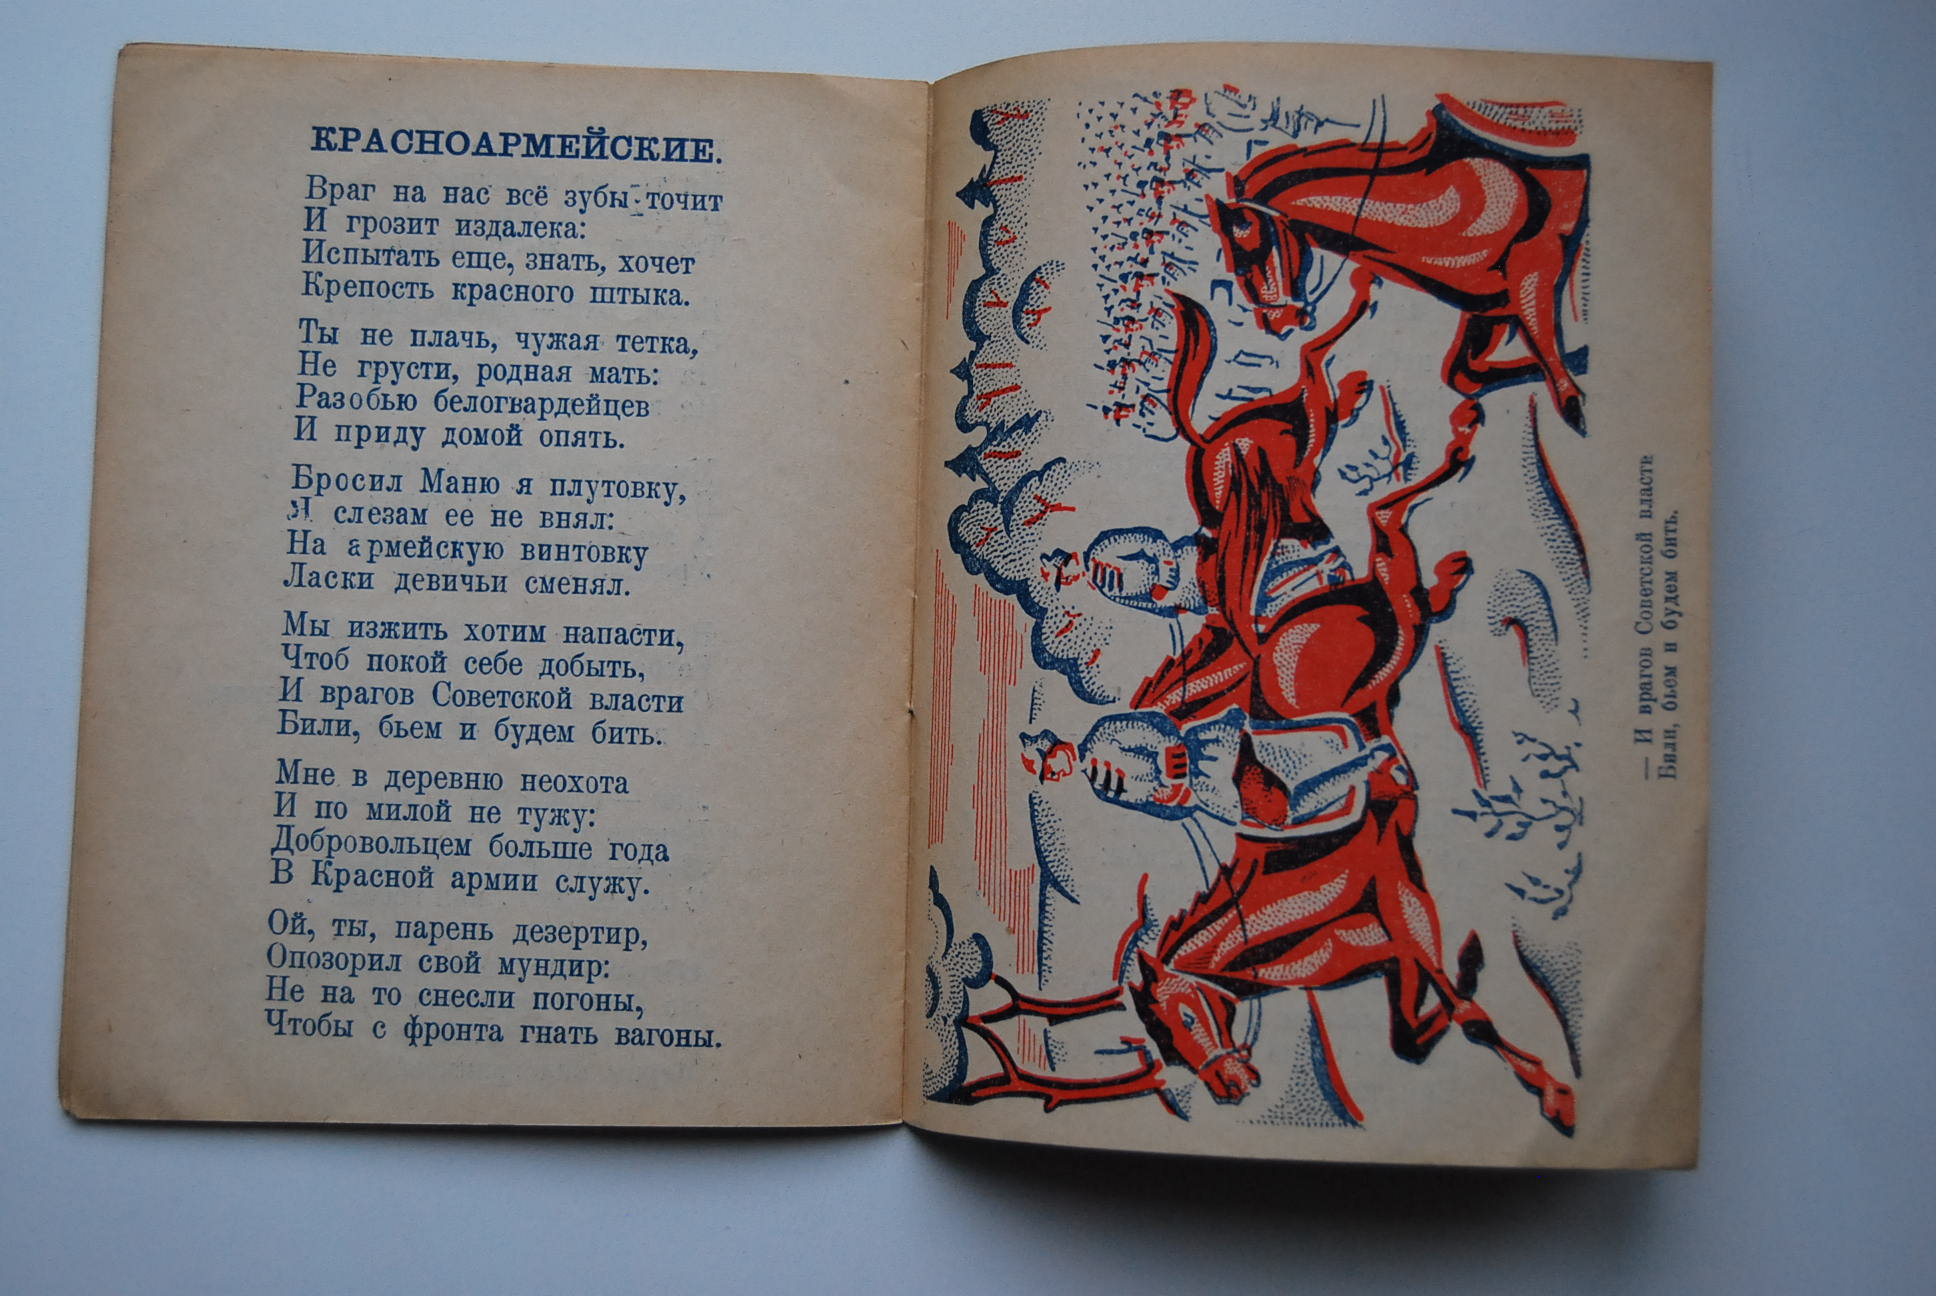 КРАСНОАРМЕЙСКИЕ.
Враг на нас всё зубы точит
И грозит издалека:
Испытать еще, знать, хочет
Крепость красного штыка.
Ты не плачь, чужая тетка,
Не грусти, родная мать:
Разобью белогвардейцев
И приду домой опять.
Бросил Маню я плутовку,
Я слезам ее не внял:
На армейскую винтовку
Ласки девичьи сменял.
Мы изжить хотим напасти,
Чтоб покой себе добыть,
И врагов Советской власти
Били, бьем и будем бить.
Мне в деревню неохота
И по милой не тужу:
Добровольцем больше года
В Красной армии служу.
Ой, ты, парень дезертир,
Опозорил свой мундир:
Не на то снесли погоны,
Чтобы с фронта гнать вагоны.
— И врагов Советской власти
Били, бьем и будем бить.